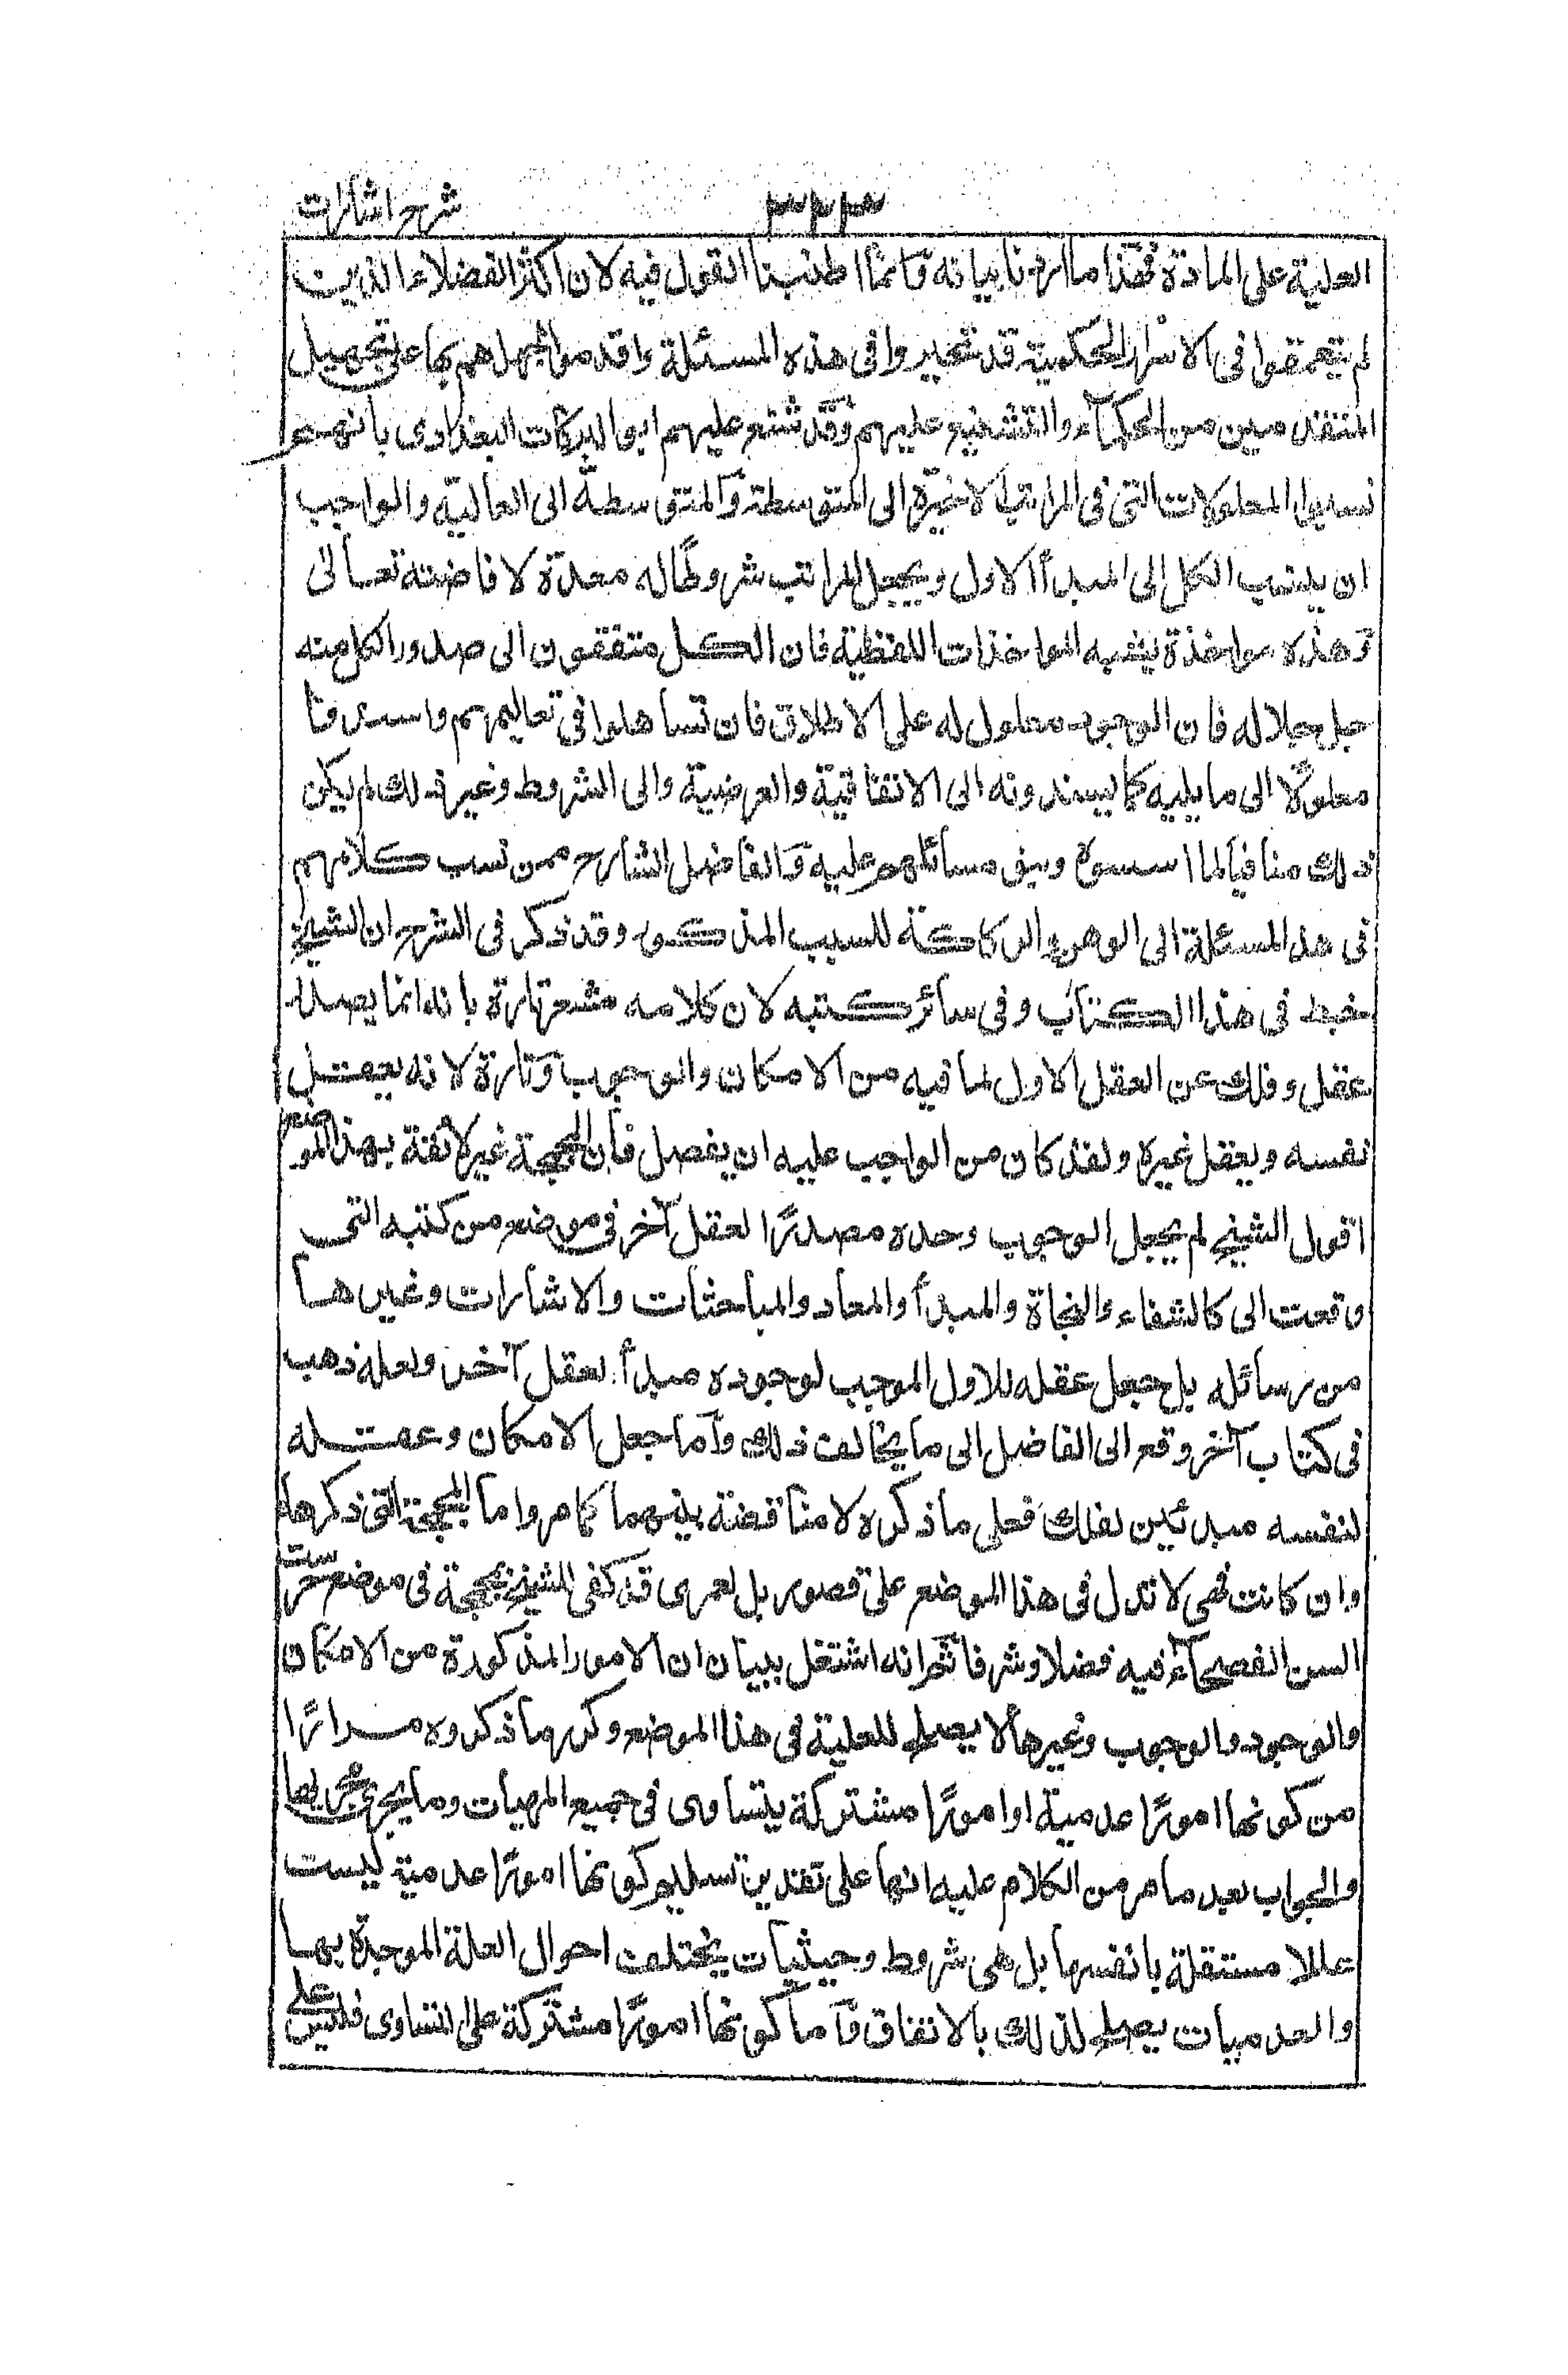 شرح اشارات
٣٢٣
العلية على المادة فهذا ما اردنا بيانه وانما اطنبنا القول فيه لان اكثر الفضلاء الذين
لم يتعمقوا فى الاسرار الحكمية قد تحيروا فى هذه المسئلة واقدموا لجهلهم بها على تجهيل
المتقدمين من الحكماء والتشنيع عليهم وقد شنع عليهم ابو البركات البغدادى بانهم
نسبوا المعلولات التى فى المراتب الاخيرة الى المتوسطة والمتوسطة الى العالية والواجب
ان ينسب الكل الى المبدأ الاول ويجعل المراتب شروطا له معدة لافاضته تعالى
وهذه مواخذة يشبه المواخذات اللفظية فان الكل متفقون الى صدور الكل منه
جل جلاله فان الوجود معلول له على الاطلاق فان تساهلوا فى تعاليمهم واسندوا
معلولا الى ما يليه كما يسندونه الى الاتفاقية والعرضية والى الشروط وغير ذلك لم يكن
ذلك منافيا لما اسسوه وبنوا مسائلهم عليه والفاضل الشارح ممن نسب كلامهم
فى هذ المسئلة الى الوهن والركاكة للسبب المذكور وقد ذكر فى الشرح ان الشيخ
خبط فى هذا الكتاب وفى سائر كتبه لان كلامه مشعر تارة بانه انما يصدر
عقل وفلك عن العقل الاول لما فيه من الامكان والوجوب وتارة لانه يعقل
نفسه ويعقل غيره ولقد كان من الواجب عليه ان يفصل فان المجمجة غير لائقة بهذا الموضع
اقول الشيخ لم يجعل الوجوب وحده مصدرًا لعقل آخر فى موضع من كتبه التى
وقعت الى كالشفاء والنجاة والمبدأ والمعاد والمباحثات والاشارات وغيرها
من رسائله بل جعل عقله للاول الموجب لوجوده مبدأ لعقل آخر ولعله ذهب
فى كتاب آخر وقع الى الفاضل الى ما يخالف ذلك وآما جعل الامكان وعقله
لنفسه مبدئين لفلك فعلى ما ذكره لا مناقضة بينهما كما مر واما المجمجة التى ذكرها
وان كانت فهى لا تدل فى هذا الموضع على قصور بل لعمرى قد كفى الشيخ بمجمجة فى موضع خرست
السن الفصحآء فيه فضلا وشرفا ثم انه اشتغل ببيان ان الامور المذكورة من الامكان
والوجود والوجوب وغيرها لا يصلح للعلية فى هذا الموضع وكرر ما ذكروه مرارًا
من كونها امورًا عدمية او امورًا مشتركة يتساوى فى جميع المهيات وما يجرى مجريها
والجواب بعد ما مر من الكلام عليه انها على تقدير تسليم كونها امورًا عدمية ليست
عللا مستقلة بانفسها بل هى شروط وحيثيات يختلف احوال العلة الموجدة بها
والعدميات يصلح لذلك بالاتفاق وآما كونها امورًا مشتركة على التساوى فليس على